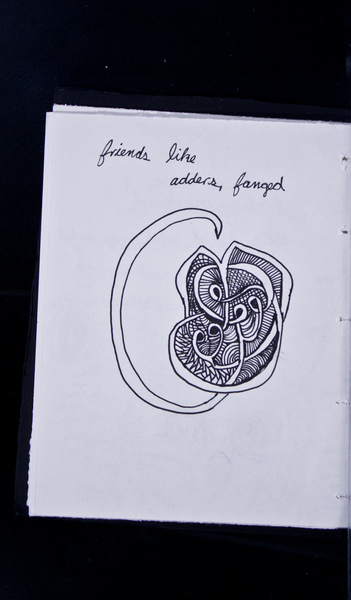 friends like
adders, fanged